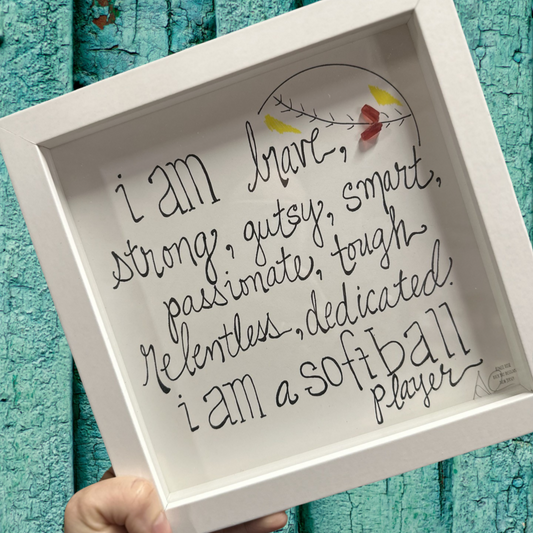 i am brave,
strong, gutsy, smart,
passionate, tough
relentless, dedicated.
i am a softball
player